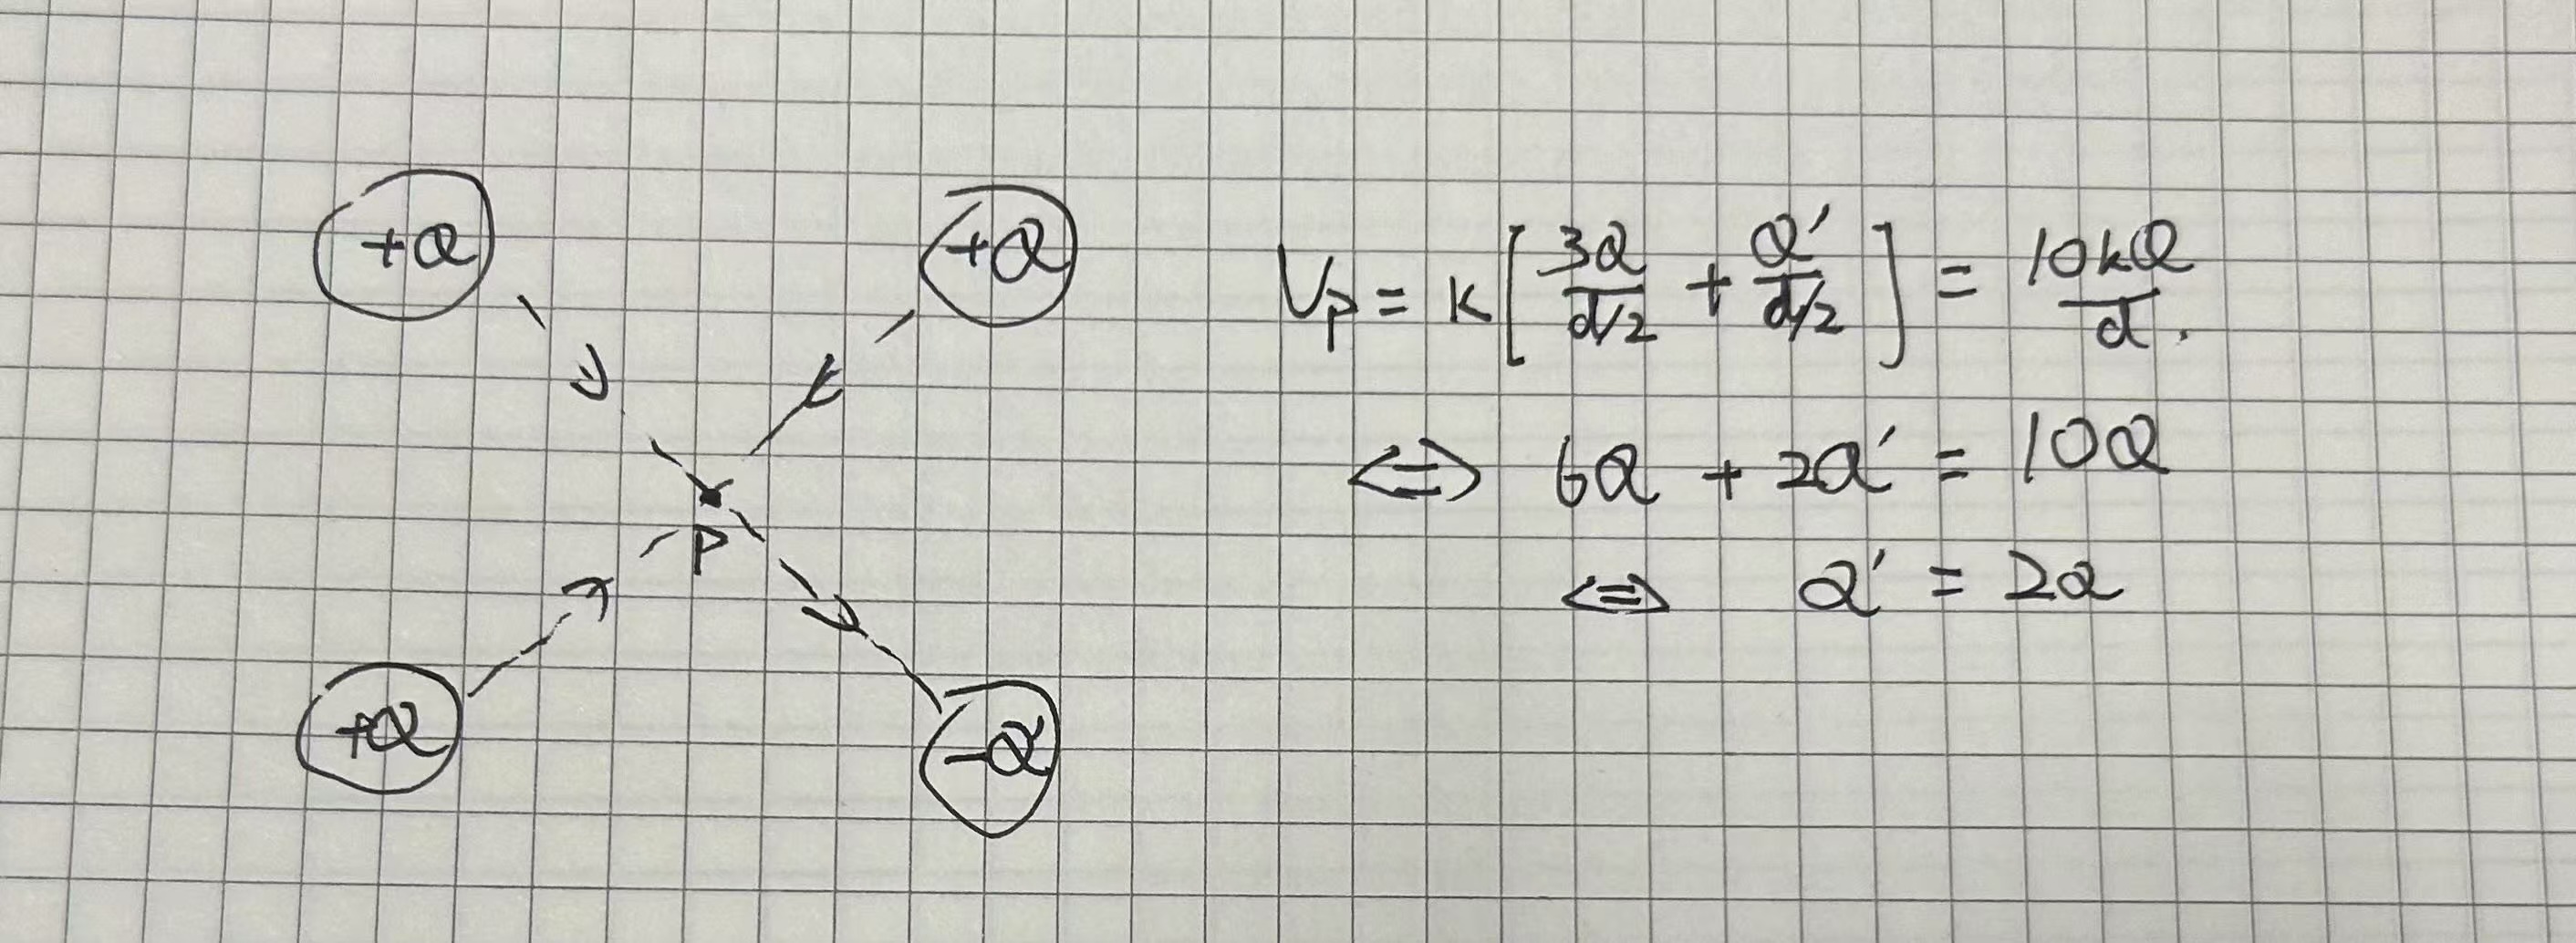 +Q +Q
P
+Q -Q'
Vp = k[3Q/(d/2) + Q'/(d/2)] = 10kQ/d.
⇔ 6Q + 2Q' = 10Q
⇔ Q' = 2Q